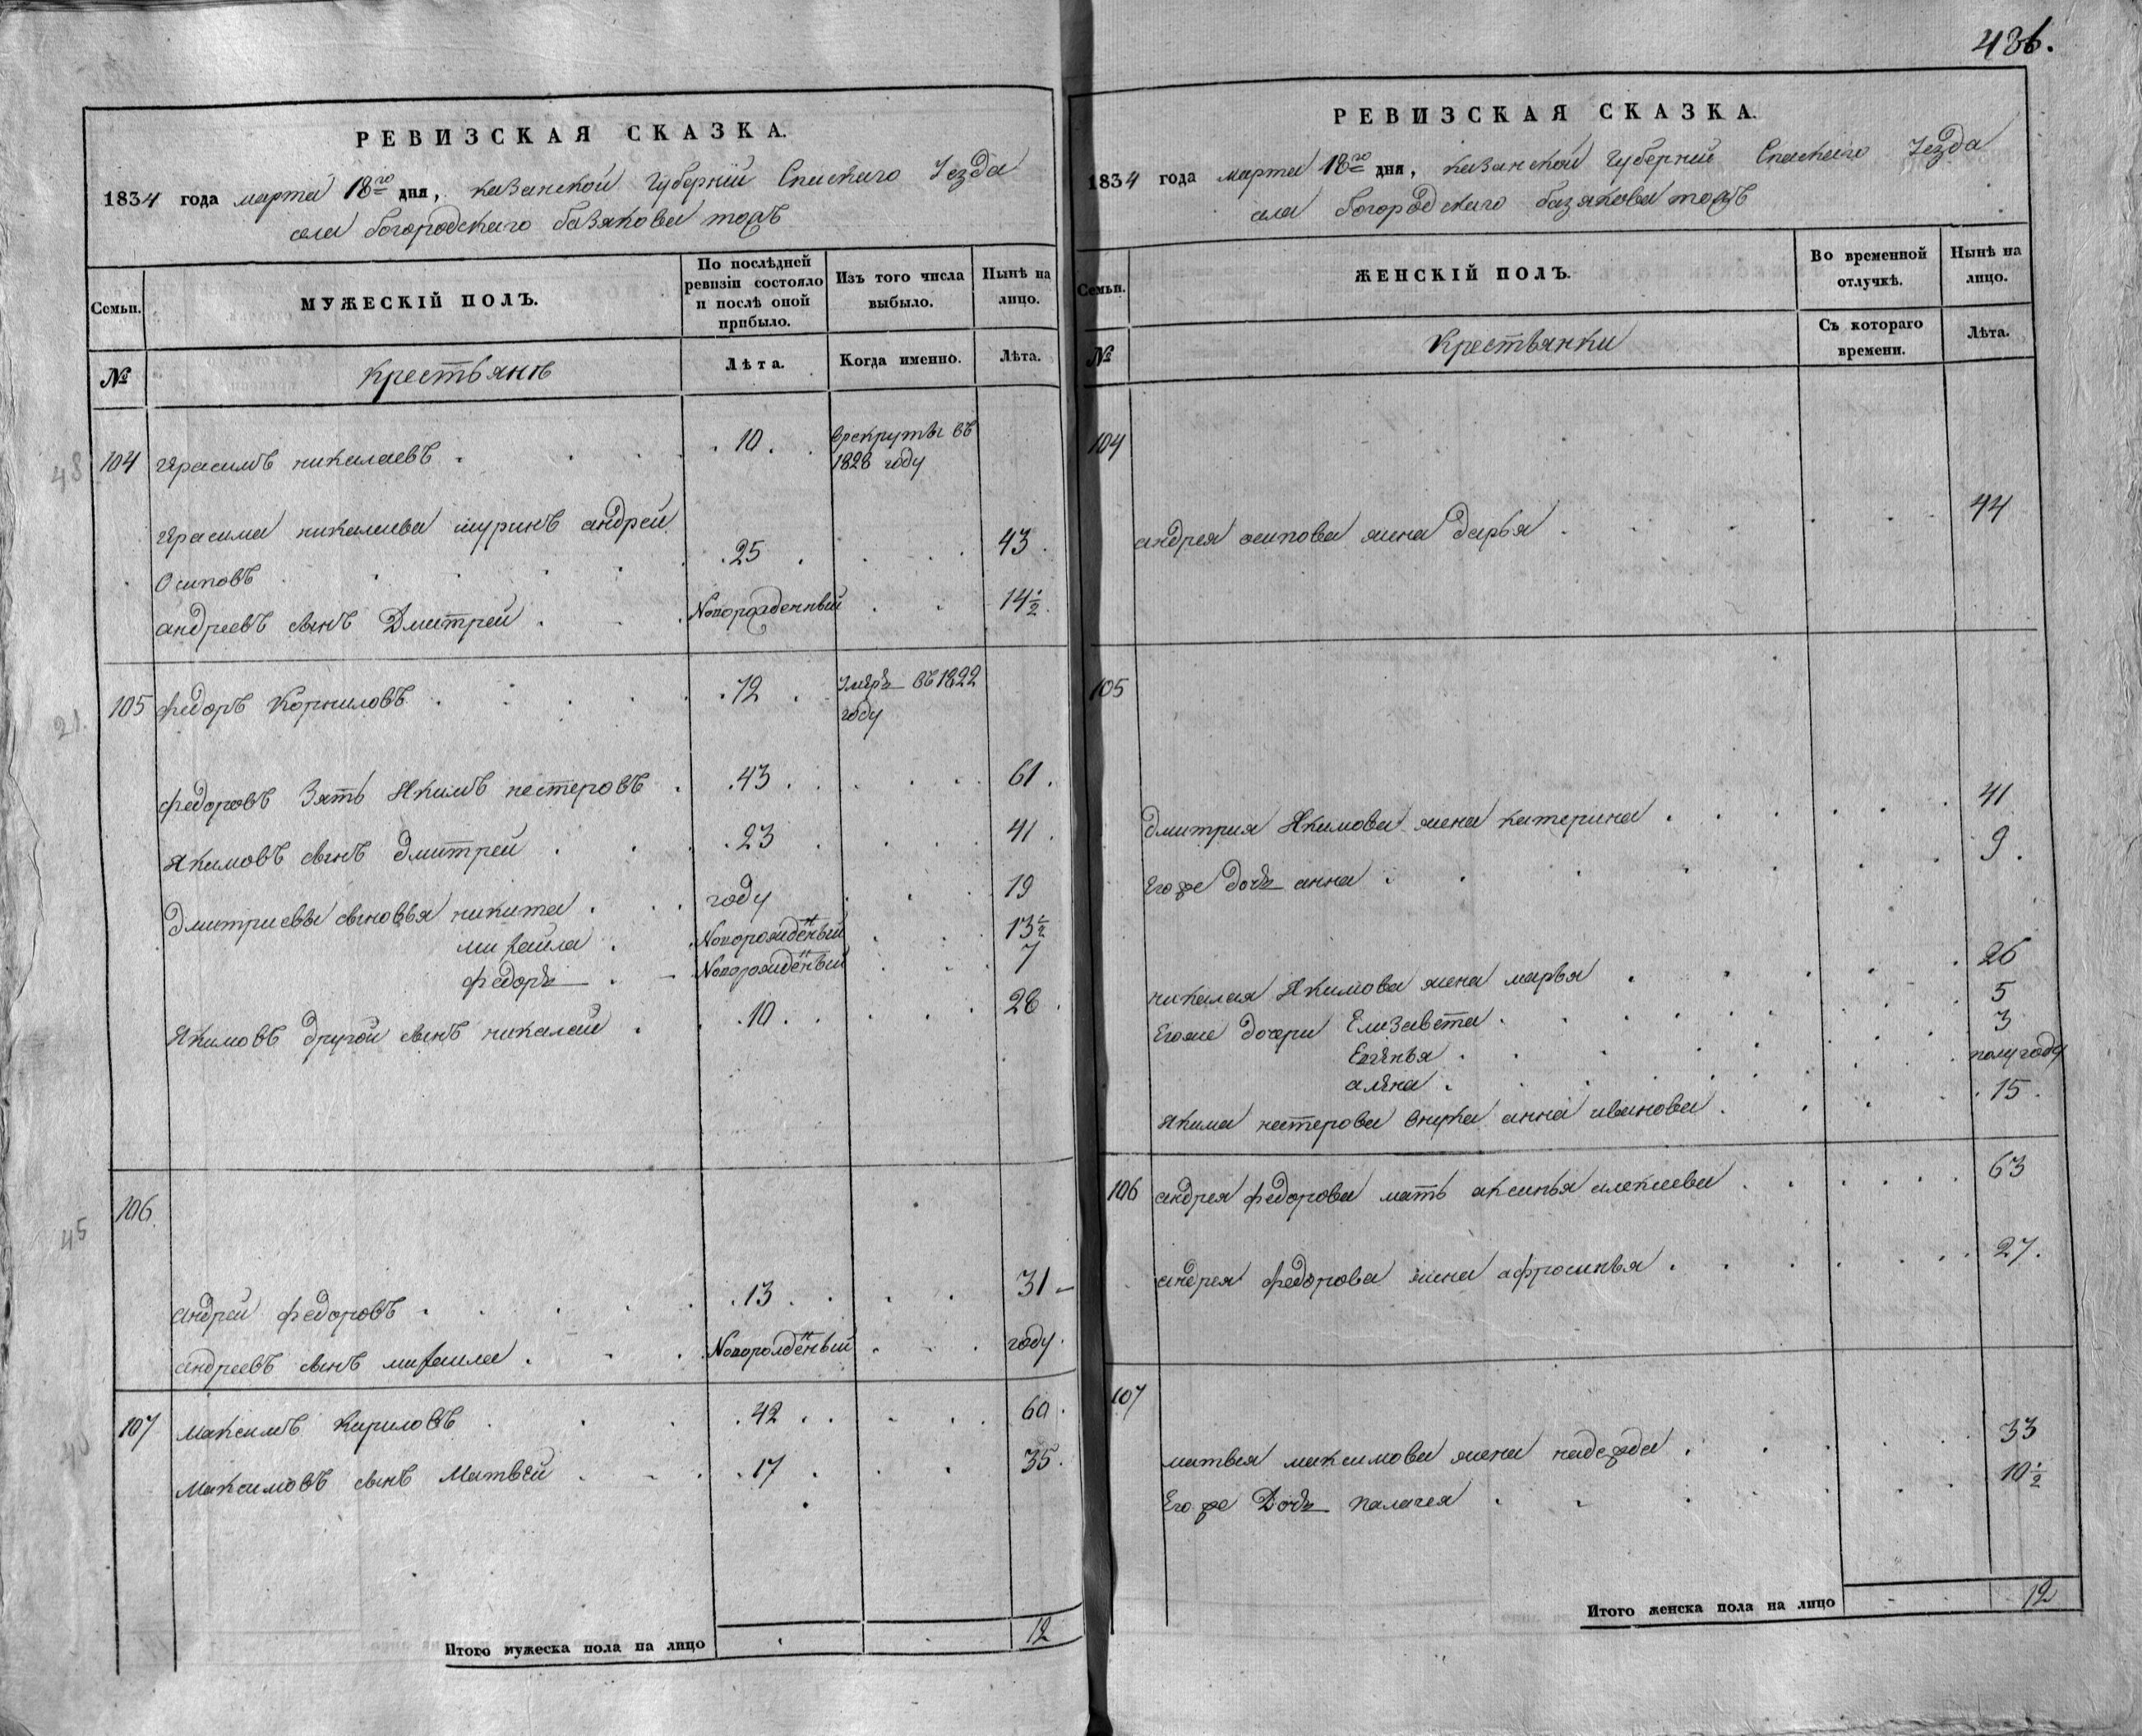 486.
РЕВИЗСКАЯ СКАЗКА.
1834 года марта 18го дня, казанской Губернии Спаскаго Уезда
села богородскаго базякова тожъ
Семьи.
МУЖЕСКІЙ ПОЛЪ.
По послѣдней ревизіи состояло и послѣ оной прибыло.
Изъ того числа выбыло.
Нынѣ на лицо.
№
крестьянѣ
Лѣта.
Когда именно.
Лѣта.
48
104 Ярасимъ никалаевъ . 10 . врекруты въ
1828 году
Ярасима никалаева шуринъ андрей
Осиповъ . 25 . 43 .
андреевъ сынъ Дмитрей . Новорожденный . 14 1/2 .
21.
105 федоръ Корниловъ . 72 . Умръ въ 1822
году
федоровъ Зять Якимъ нестеровъ . 43 . 61 .
Якимовъ сынъ Дмитрей . 23 . 41 .
Дмитриевы сыновья никита . году . 19
михаила . Новорожденый . 13 1/2
федоръ . Новорожденый . 7
Якимовъ другой сынъ никалай . 10 . 28 .
45
106
андрей федоровъ . 13 . 31 –
андреевъ сынъ михаила . Новорожденый . году .
40
107 Максимъ Кириловъ . 42 . 60 .
Максимовъ сынъ Матвей . 17 . 35 .
Итого мужеска пола на лицо 12
РЕВИЗСКАЯ СКАЗКА.
1834 года марта 18го дня, казанской Губернии Спаскаго Уезда
села богородскаго базякова тожъ
Семьи.
ЖЕНСКІЙ ПОЛЪ.
Во временной отлучкѣ.
Нынѣ на лицо.
№
Крестьянки
Съ котораго времени.
Лѣта.
104
андрея осипова жена дарья . 44
105
Дмитрия Якимова жена катерина . 41
Его же дочь анна . 9 .
никалая Якимова жена марья . 26
Егоже дочери Елизавета . 5
Евгенья . 3
алена . полугоду
Якима нестерова внука анна иванова . 15 .
106 андрея федорова мать аксинья алексеева . 63
андрея федорова жена афросинья . 27 .
107
матвея максимова жена надежда . 33
Его же Дочь палагея . 10 1/2
Итого женска пола на лицо 12